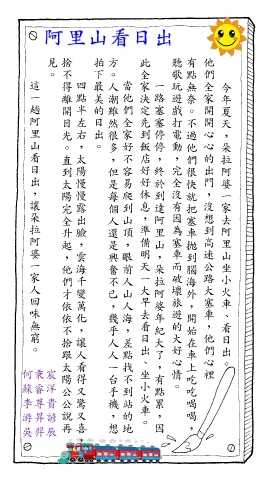 阿里山看日出
今年夏天，朵拉阿婆一家去阿里山坐小火車、看日出。
他們全家開開心心的出門，沒想到高速公路大塞車，他們心裡
有點無奈。不過他們很快就把塞車拋到腦海外，開始在車上吃吃喝喝，
聽歌玩遊戲打電動，完全沒有因為塞車而破壞旅遊的大好心情。
一路塞塞停停，終於到達阿里山，朵拉阿婆年紀大了，有點累，因
此全家決定先到飯店好好休息，準備明天一大早去看日出、坐小火車。
當他們全家好不容易爬到山頂，眼前人山人海，差點找不到站的地
方。人潮雖然很多，但是每個人還是興奮不已，幾乎人人一台手機，想
拍下最美的日出。
四點半左右，太陽慢慢露出臉，雲海千變萬化，讓人看得又驚又喜，
捨不得離開目光。直到太陽完全升起，他們才依依不捨跟太陽公公說再
見。
這一趟阿里山看日出，讓朵拉阿婆一家人回味無窮。
宸洋貴諺辰
秉睿尊昇羿
何蘇李游吳